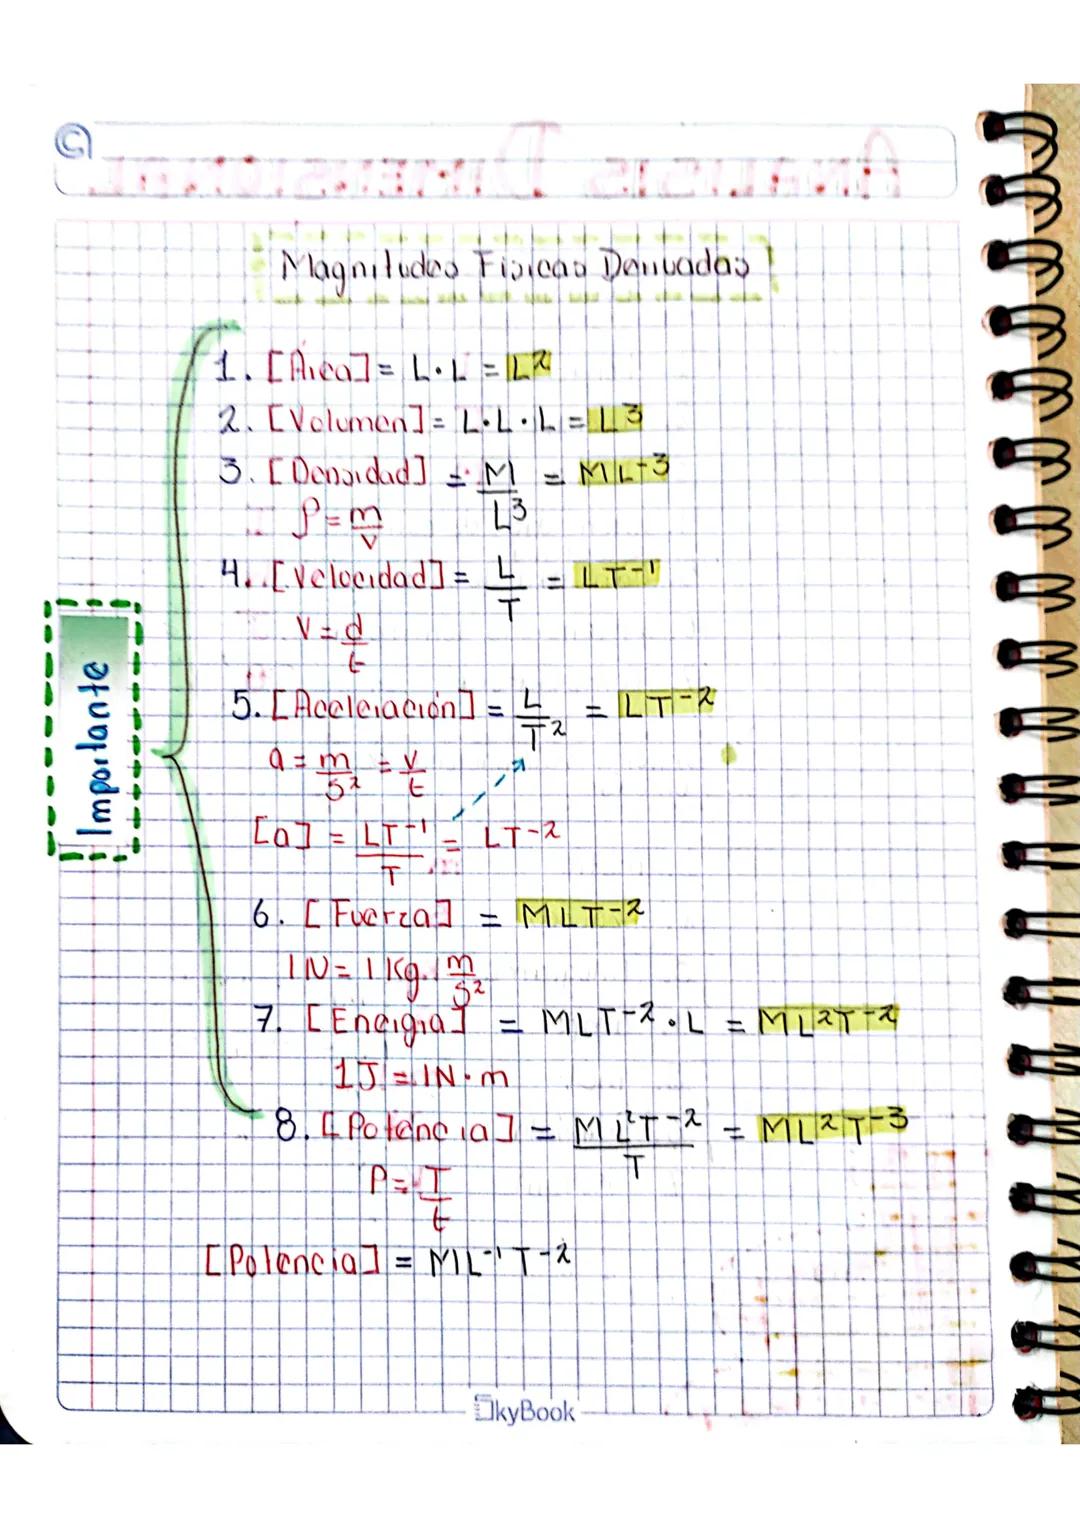 Magnitudes Fisicas Derivadas
1. [Área] = L·L = L²
2. [Volumen] = L·L·L = L³
3. [Densidad] = M/L³ = ML⁻³
ρ = m/v
4. [Velocidad] = L/T = LT⁻¹
V = d/t
5. [Aceleración] = L/T² = LT⁻²
a = m/s² = v/t
[a] = LT⁻¹/T = LT⁻²
6. [Fuerza] = MLT⁻²
1N = 1Kg·1m/s²
7. [Energia] = MLT⁻²·L = ML²T⁻²
1J = 1N·m
8. [Potencia] = ML²T⁻²/T = ML²T⁻³
P = T/t
[Potencia] = ML⁻¹T⁻²
Importante
SkyBook